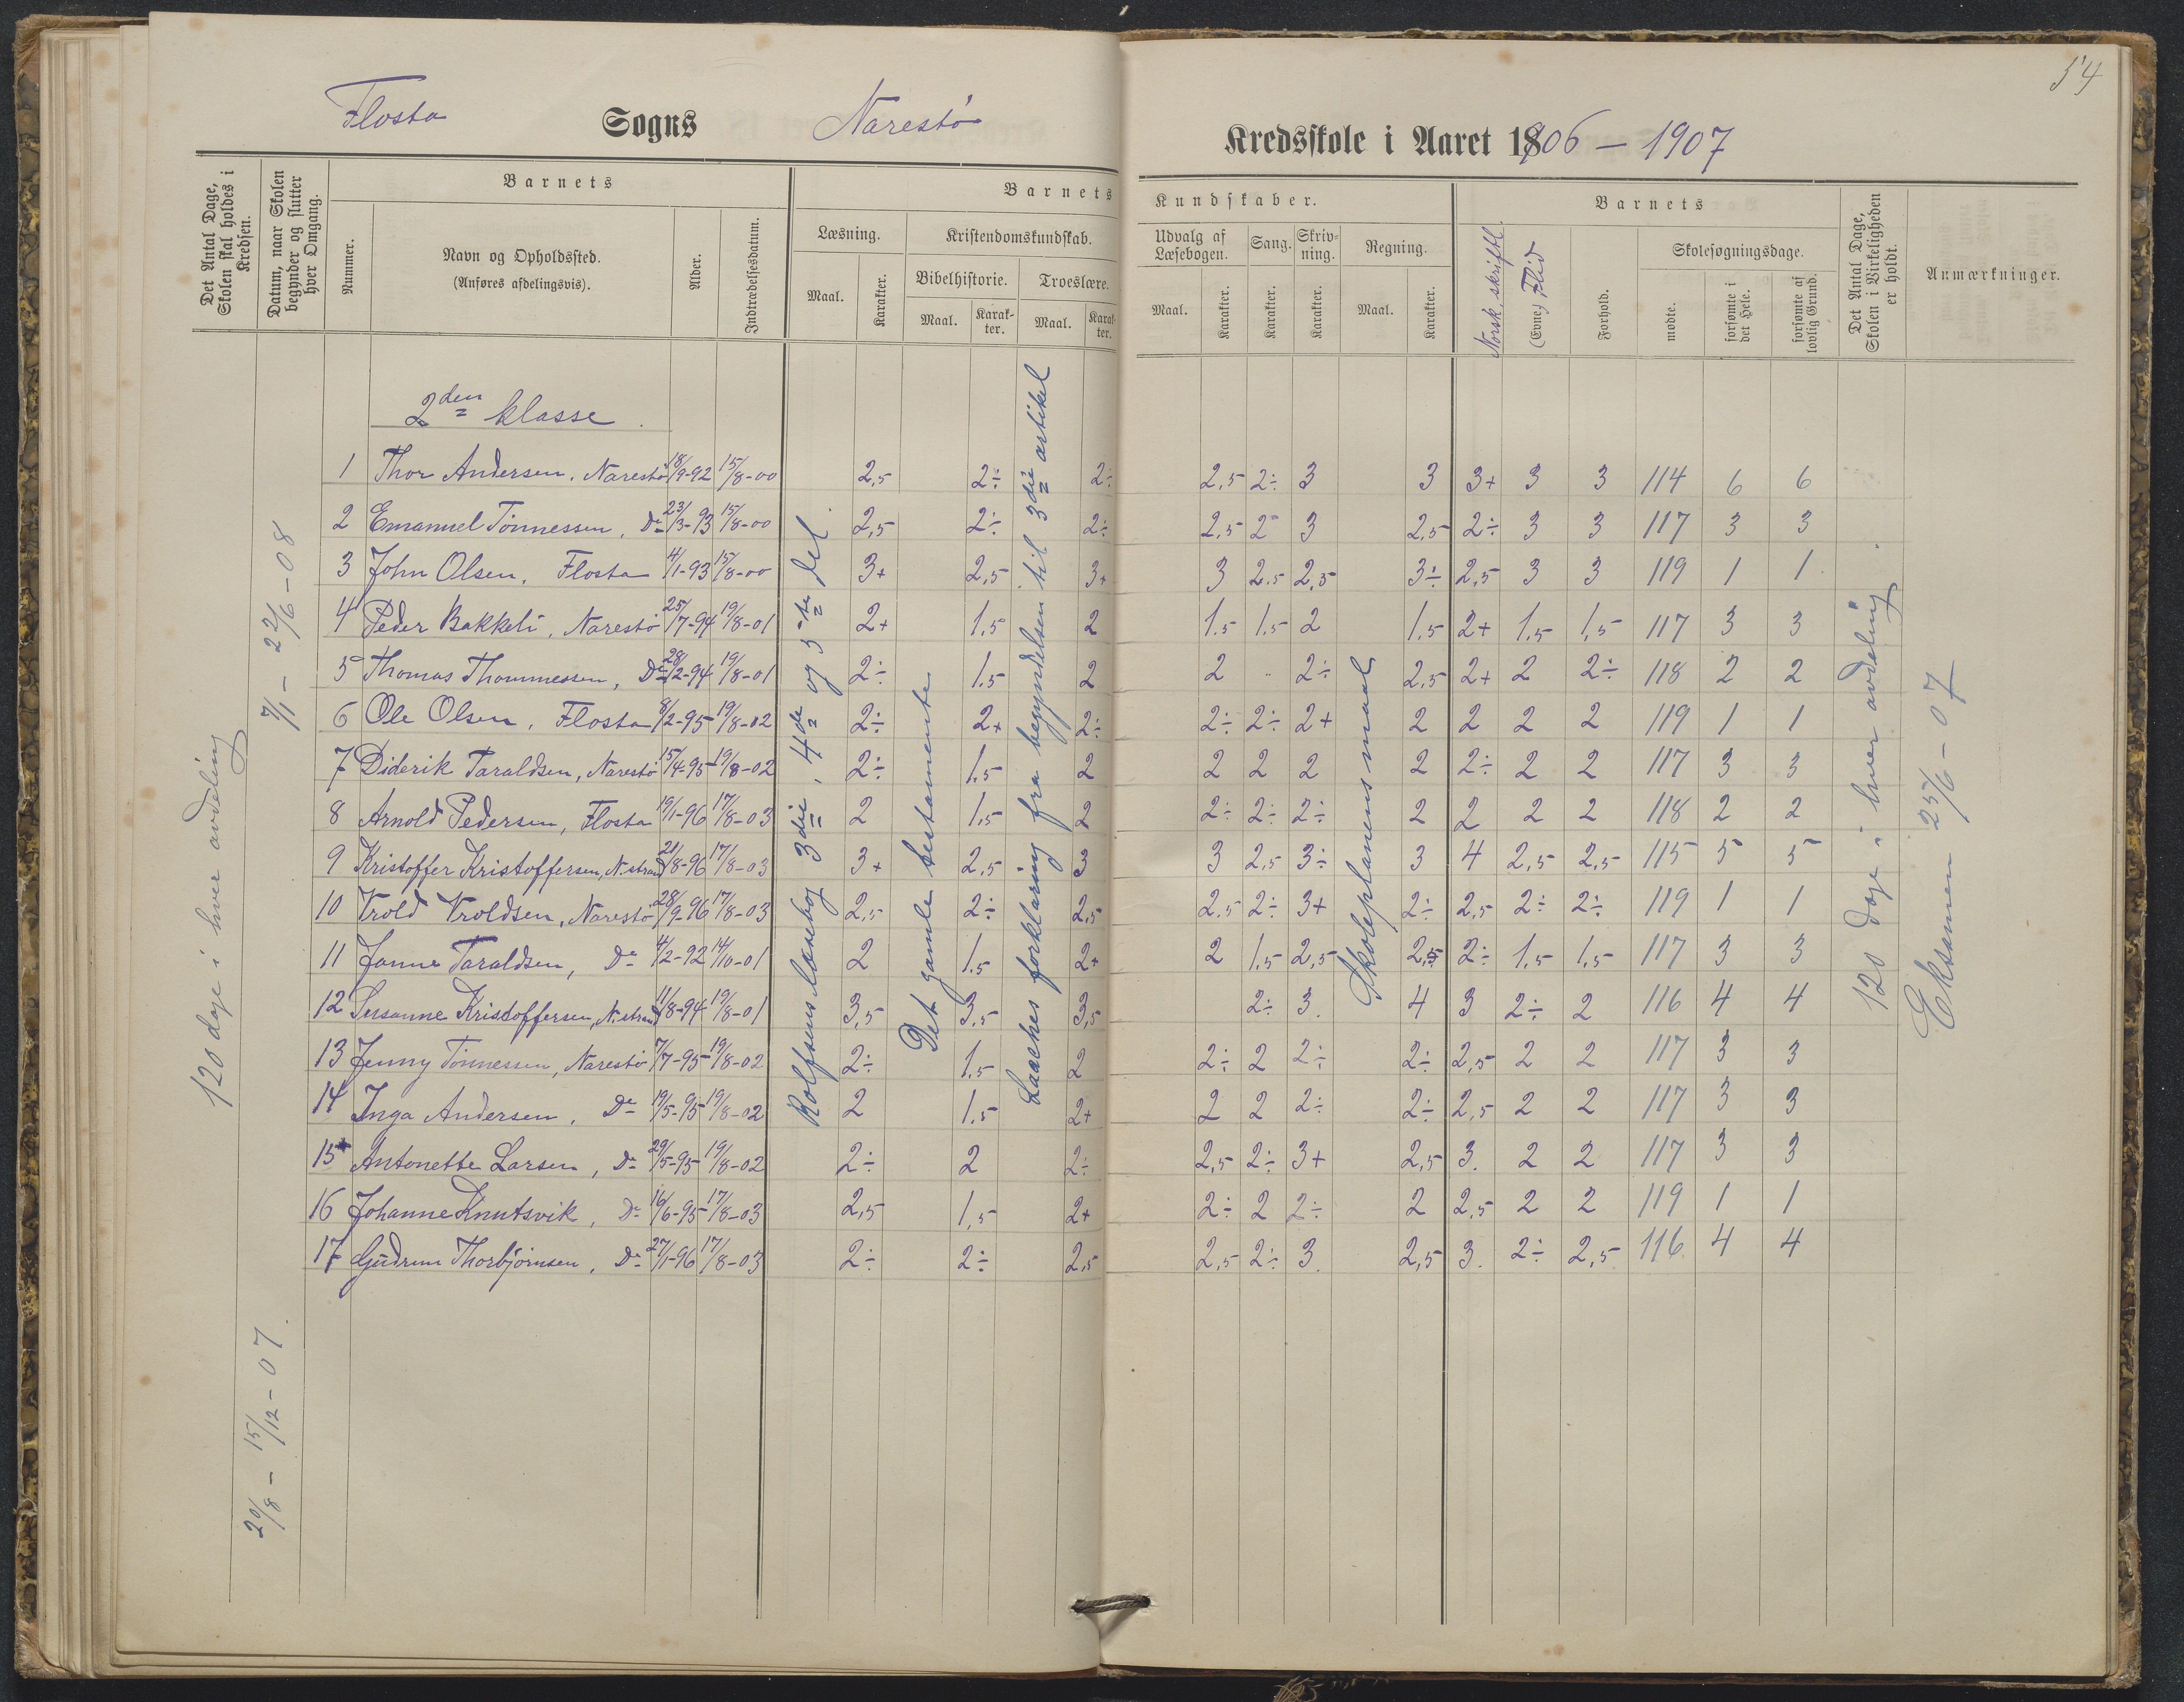 54
Flosta Sogns Narestö Kredsskole i Aaret 1906 – 1907
Det Antal Dage, Skolen skal holdes i Kredsen.
Datum, naar Skolen begynder og slutter hver Omgang.
Barnets
Nummer.
Navn og Opholdssted.
(Anføres afdelingsvis).
Alder.
Indtrædelsesdatum.
Barnets Kundskaber.
Læsning.
Maal.
Karakter.
Kristendomskundskab.
Bibelhistorie.
Maal.
Karakter.
Troeslære.
Maal.
Karakter.
Udvalg af Læsebogen.
Maal.
Karakter.
Sang.
Karakter.
Skrivning.
Karakter.
Regning.
Maal.
Karakter.
Barnets
Norsk, skriftl.
(Evne) Flid
Forhold.
Skolesøgningsdage.
mødte.
forsømte i det Hele.
forsømte af lovlig Grund.
Det Antal Dage, Skolen i Virkeligheden er holdt.
Anmærkninger.
2den klasse
1 Thor Andersen, Narestö 18/9-92 15/8-00 2,5 2÷ 2÷ 2,5 2÷ 3 3 3+ 3 3 114 6 6
2 Emanuel Tönnessen, Do 23/3-93 15/8-00 2,5 2÷ 2÷ 2,5 2- 3 2,5 2÷ 3 3 117 3 3
3 John Olsen, Flosta 4/1-93 15/8-00 3+ 2,5 3+ 3 2,5 2,5 3÷ 2,5 3 3 119 1 1
4 Peder Bakkeli, Narestö 25/7-94 19/8-01 2+ 1.5 2 1.5 1.5 2 1.5 2+ 1.5 1,5 117 3 3
5 Thomas Thommessen, Do 28/2-94 19/8-01 2÷ 1.5 2 2 2÷ 2,5 2+ 2 2÷ 118 2 2
6 Ole Olsen, Flosta 8/2-95 19/8-02 2÷ 2+ 2÷ 2÷ 2÷ 2+ 2 2 2 2 119 1 1
7 Diderik Taraldsen, Narestö 15/4-95 19/8-02 2÷ 1.5 2 2 2 2 2 2÷ 2 2 117 3 3
8 Arnold Pedersen, Flosta 19/1-96 17/8-03 2 1.5 2 2÷ 2÷ 2÷ 2 2 2 2 118 2 2
9 Kristoffer Kristoffersen, N.strand 21/8-96 17/8-03 3+ 2,5 3 3 2,5 3÷ 3 4 2,5 2,5 115 5 5
10 Trold Troldsen, Narestö 28/9-96 17/8-03 2,5 2÷ 2,5 2.5 2÷ 3+ 2÷ 2,5 2÷ 2÷ 119 1 1
11 Janna Taraldsen, Do 4/2-92 14/10-01 2 1.5 2+ 2 1,5 2,5 2,5 2÷ 1,5 1,5 117 3 3
12 Susanne Kristoffersen, N.strand 11/8-94 19/8-01 3,5 3,5 3,5 2÷ 3. 4 3 2÷ 2 116 4 4
13 Jenny Tönnessen, Narestö 7/7-95 19/8-02 2÷ 1.5 2 2÷ 2 2÷ 2÷ 2,5 2 2 117 3 3
14 Inga Andersen, Do 19/5-95 19/8-02 2 1.5 2+ 2 2 2÷ 2÷ 2,5 2 2 117 3 3
15 Antonette Larsen, Do 29/5-95 19/8-02 2÷ 2 2÷ 2,5 2÷ 3+ 2,5 3. 2 2 117 3 3
16 Johanne Knutsvik, Do 16/6-95 17/8-03 2,5 1,5 2+ 2÷ 2 2÷ 2 2,5 2 2 119 1 1
17 Gudrun Thorbjörnsen, Do 27/1-96 17/8-03 2÷ 2÷ 2,5 2,5 2÷ 3. 2,5 3. 2÷ 2,5 116 4 4
120 dage i hver avdeling
20/8 – 15/12 – 07.
7/1 – 22/6 – 08
Rolfsens læsebog 3die, 4de og 5te del.
Det gamle testamente
Laaches forklaring fra begyndelsen til 3die artikel
Skoleplanens maal
120 dage i hver avdeling
Eksamen 25/6 – 07